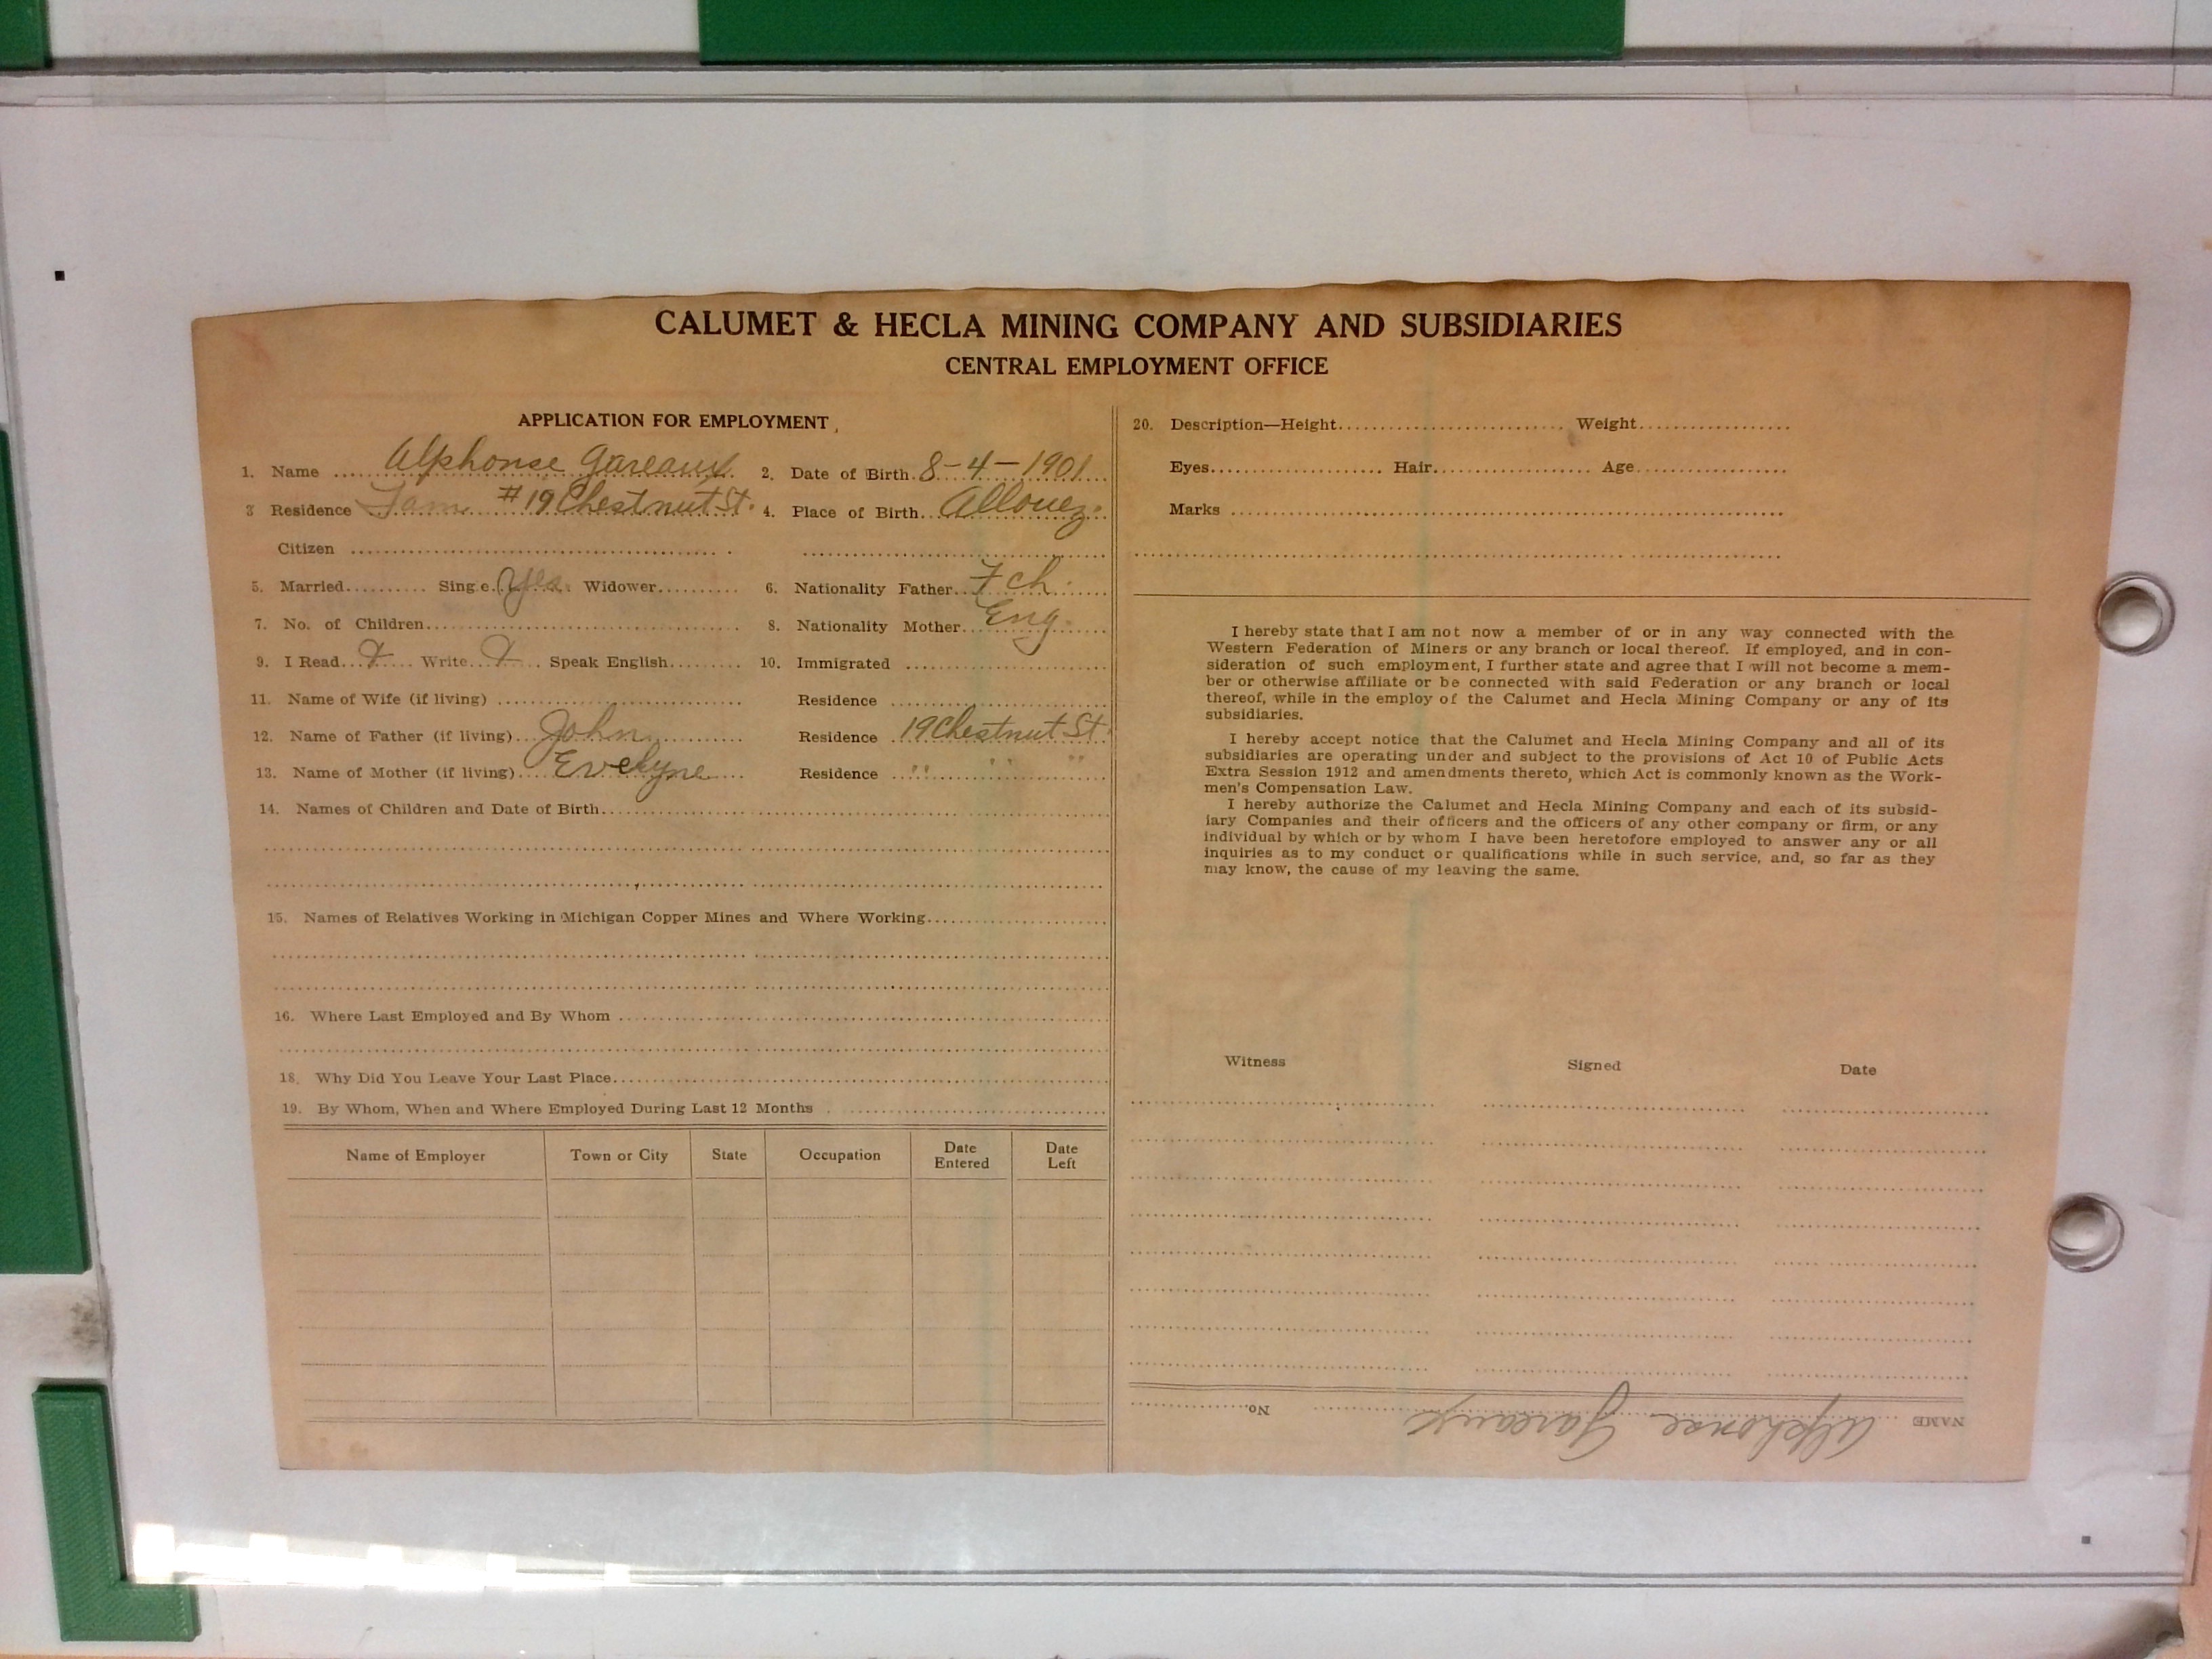 CALUMET & HECLA MINING COMPANY AND SUBSIDIARIES
CENTRAL EMPLOYMENT OFFICE
APPLICATION FOR EMPLOYMENT
1. Name Alphonse Gareaux 2. Date of Birth 8-4-1901
3 Residence Tam # 19 Chestnut St. 4. Place of Birth Allouez.
Citizen
5. Married Sing e Yes Widower 6. Nationality Father Fch.
7. No. of Children 8. Nationality Mother Eng.
9. I Read Write Speak English 10. Immigrated
11. Name of Wife (if living) Residence
12. Name of Father (if living) John Residence 19 Chestnut St.
13. Name of Mother (if living) Evelyne Residence " " "
14. Names of Children and Date of Birth
15. Names of Relatives Working in Michigan Copper Mines and Where Working
16. Where Last Employed and By Whom
18. Why Did You Leave Your Last Place
19. By Whom, When and Where Employed During Last 12 Months
Name of Employer Town or City State Occupation Date Entered Date Left
20. Description—Height Weight
Eyes Hair Age
Marks
I hereby state that I am not now a member of or in any way connected with the
Western Federation of Miners or any branch or local thereof. If employed, and in con-
sideration of such employment, I further state and agree that I will not become a mem-
ber or otherwise affiliate or be connected with said Federation or any branch or local
thereof, while in the employ of the Calumet and Hecla Mining Company or any of its
subsidiaries.
I hereby accept notice that the Calumet and Hecla Mining Company and all of its
subsidiaries are operating under and subject to the provisions of Act 10 of Public Acts
Extra Session 1912 and amendments thereto, which Act is commonly known as the Work-
men's Compensation Law.
I hereby authorize the Calumet and Hecla Mining Company and each of its subsid-
iary Companies and their officers and the officers of any other company or firm, or any
individual by which or by whom I have been heretofore employed to answer any or all
inquiries as to my conduct or qualifications while in such service, and, so far as they
may know, the cause of my leaving the same.
Witness Signed Date
NAME Alphonse Gareaux No.